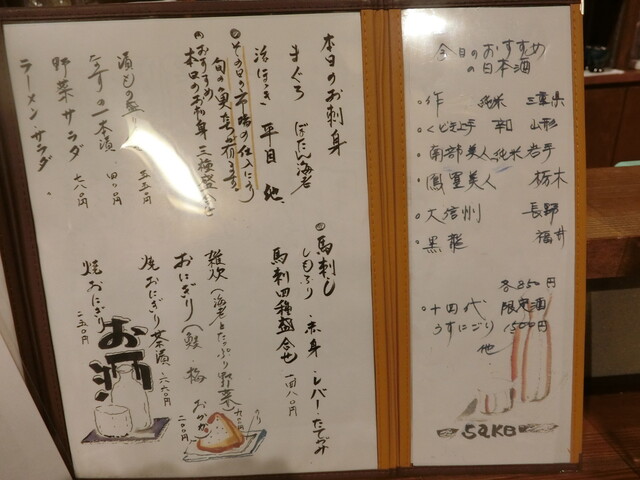 本日のお刺身
まぐろ ぼたん海老
活ほっき 平目 他
その日の市場の仕入により
旬の魚たちが
おすすめ
本日のお刺身 三種盛
漬もの盛り
なすの一本漬 四〇〇円
野菜サラダ 七八〇円
ラーメンサラダ
馬刺し
しもふり・赤身・レバー・たてがみ
馬刺四種盛合せ 一四八〇円
雑炊(海老とたっぷり野菜)
おにぎり(鮭 梅 おかか) 二〇〇円
のり
焼おにぎり茶漬 六六〇円
焼おにぎり 二五〇円
お酒
今日のおすすめ
の日本酒
・作 純米 三重県
・くどき上手 辛口 山形
・南部美人 純米 岩手
・鳳凰美人 栃木
・大信州 長野
・黒龍 福井
各850円
・十四代 限定酒
うすにごり 1500円
他
SAKE